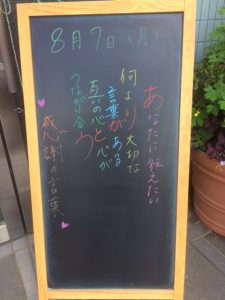 8月7日(月)
あなたに伝えたい
何より大切な
言葉がある
互いの心と心が
つながり合う
感謝の言葉